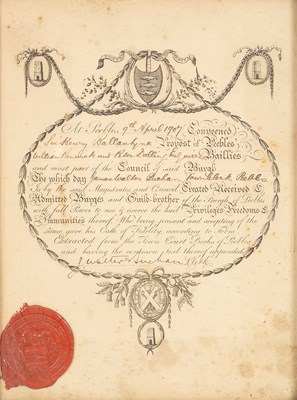 At Peebles 9th April 1907 Convened
Sir Henry Ballantyne Provost of Peebles
Baillies
and most part of the Council of said Burgh
The which day James Walter Buchan Town Clerk Peebles
Is by the said Magistrates and Council Created Received &
Admitted Burges and Guild-brother of the Burgh of Peebles
with full Power to use & receive the haill Privileges Freedoms &
Immunities thereof Who being present and accepting of the
same gave his Oath of Fidelity according to Form
Extracted from the Town Court Books of Peebles
and having the common seal thereof appended
J Walter Buchan Clk